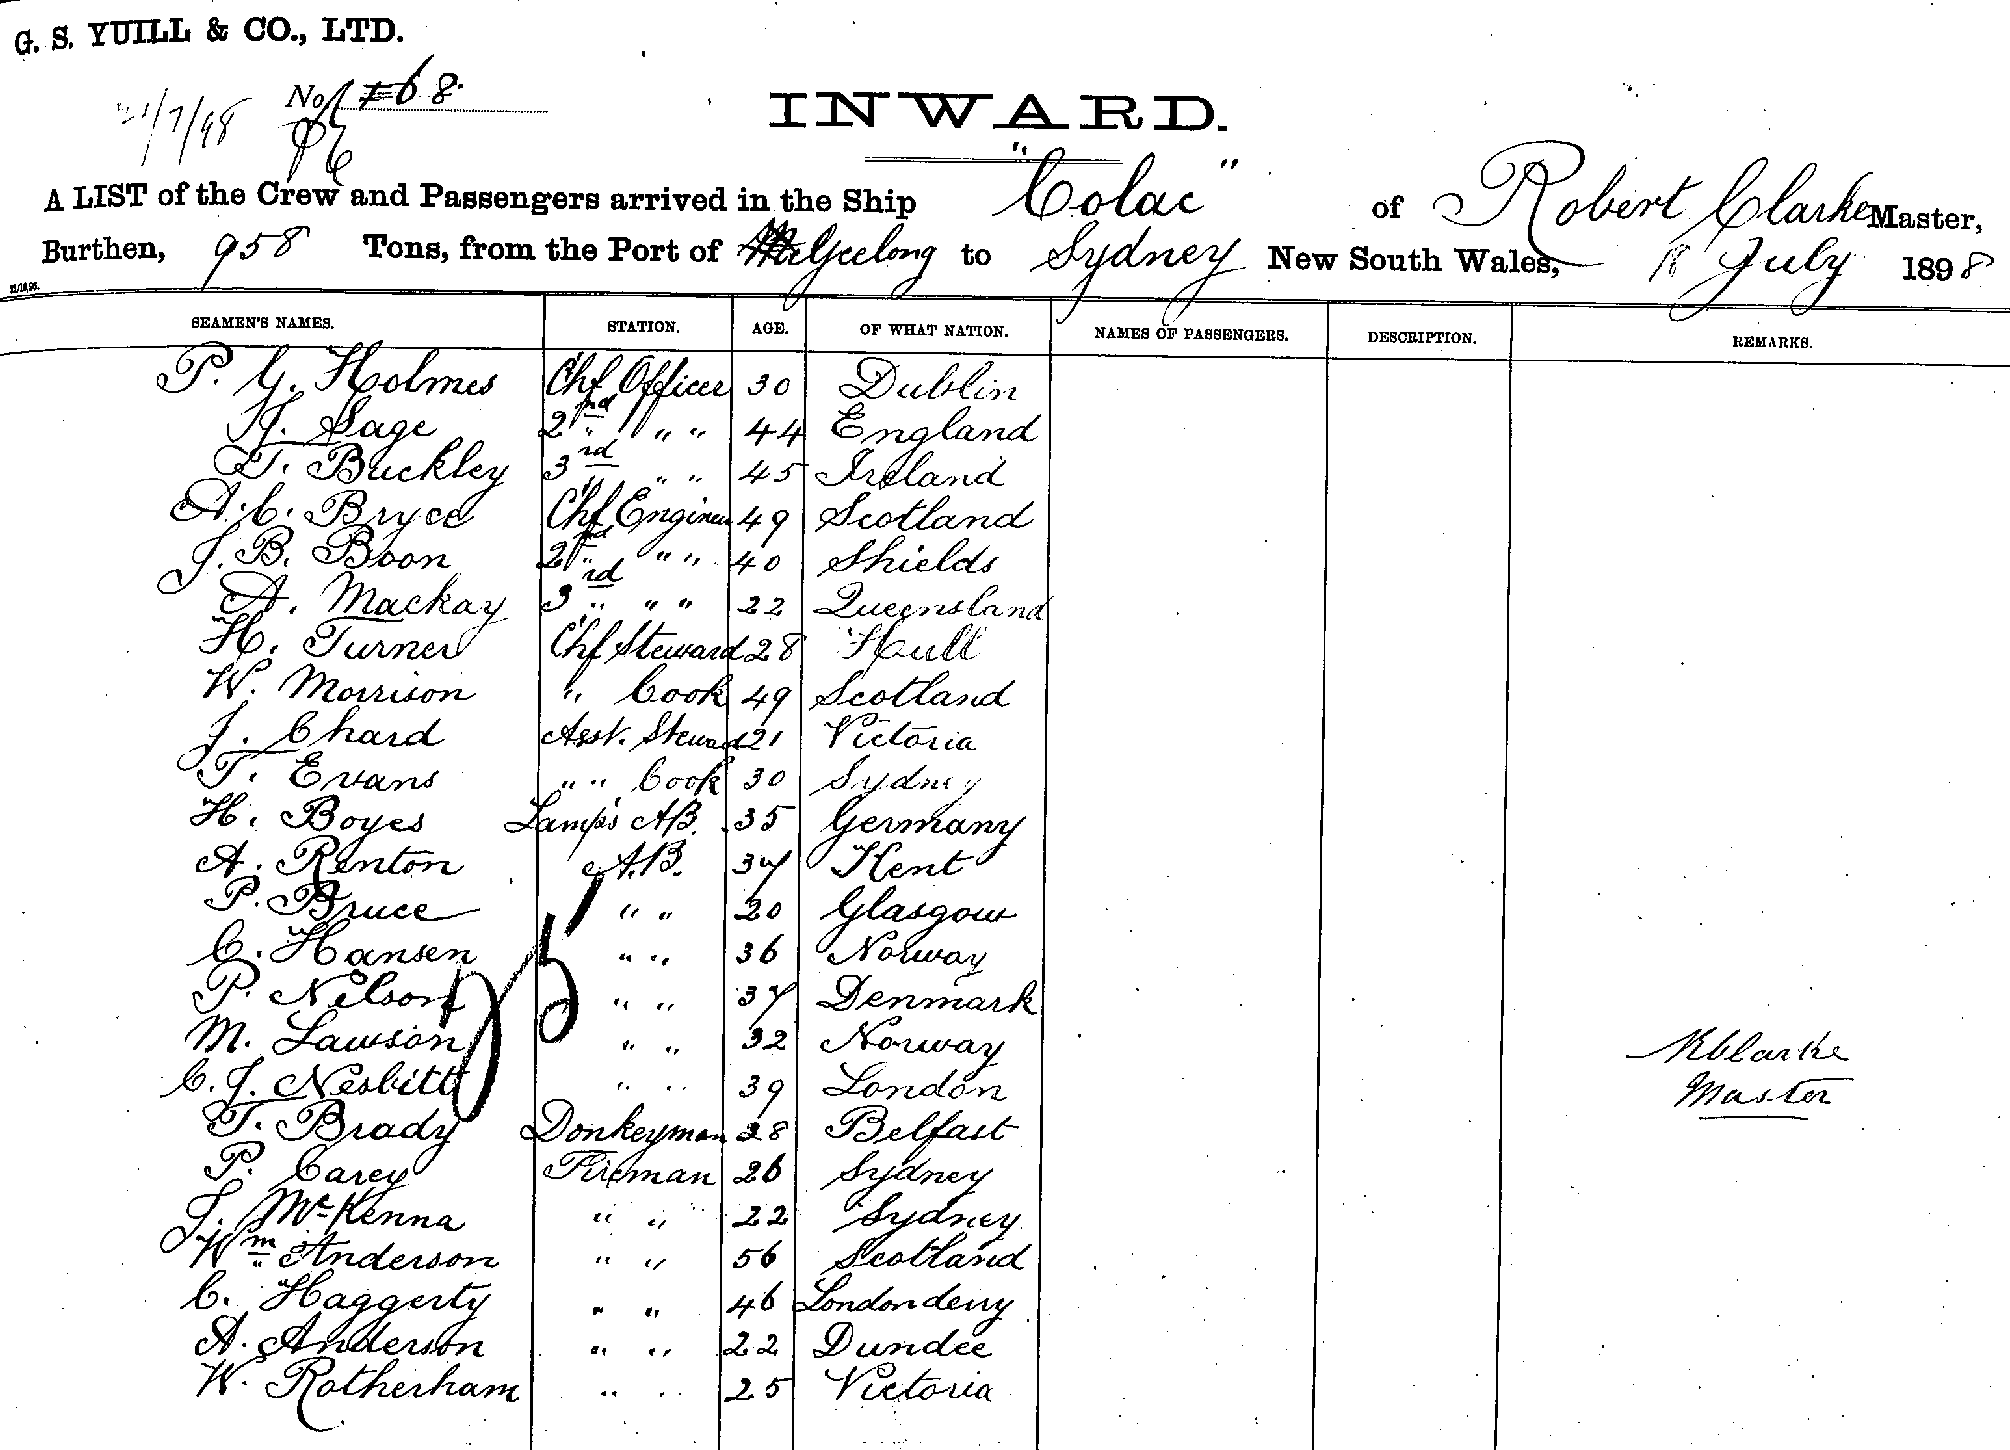 G. S. YUILL & CO., LTD.
21/7/98 No 168
INWARD.
A LIST of the Crew and Passengers arrived in the Ship "Colac" of Robert Clarke Master,
Burthen, 958 Tons, from the Port of Geelong to Sydney New South Wales, 18 July 1898
SEAMEN'S NAMES. STATION. AGE. OF WHAT NATION. NAMES OF PASSENGERS. DESCRIPTION. REMARKS.
P. G. Holmes Chf Officer 30 Dublin
H. Sage 2nd " " " 44 England
T. Buckley 3rd " " " 45 Ireland
A. C. Bryce Chf Engineer 49 Scotland
J. B. Boon 2nd " " " 40 Shields
A. Mackay 3rd " " " 22 Queensland
H. Turner Chf Steward 28 Hull
W. Morrison " Cook 49 Scotland
J. Chard Asst. Steward 21 Victoria
T. Evans " " Cook 30 Sydney
H. Boyes Lamps AB. 35 Germany
A. Renton A.B. 34 Kent
P. Bruce " " 20 Glasgow
C. Hansen " " 36 Norway
P. Nelson " " 37 Denmark
M. Lawson " " 32 Norway
C. J. Nesbitt " " 39 London
T. Brady Donkeyman 38 Belfast
P. Carey Fireman 26 Sydney
J. McKenna " " 22 Sydney
Wm Anderson " " 56 Scotland
C. Haggerty " " 46 Londonderry
A. Anderson " " 22 Dundee
W. Rotherham " " 25 Victoria
R Clarke
Master